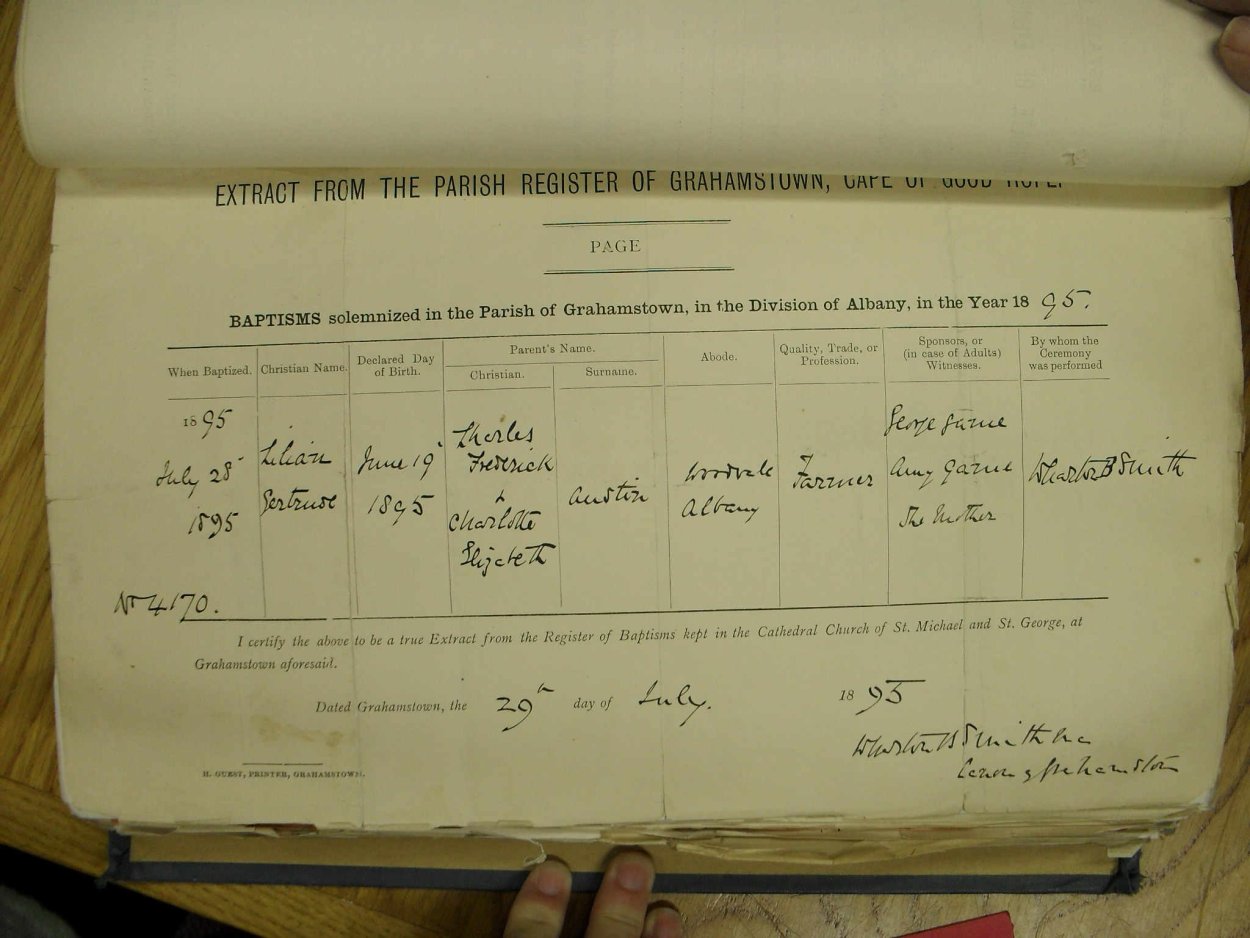 EXTRACT FROM THE PARISH REGISTER OF GRAHAMSTOWN, CAPE OF GOOD HOPE.
PAGE
BAPTISMS solemnized in the Parish of Grahamstown, in the Division of Albany, in the Year 18 95.
When Baptized.
Christian Name.
Declared Day
of Birth.
Parent's Name.
Christian.
Surname.
Abode.
Quality, Trade, or
Profession.
Sponsors, or
(in case of Adults)
Witnesses.
By whom the
Ceremony
was performed
1895
July 28
1895
Lilian
Gertrude
June 19
1895
Charles
Frederick
&
Charlotte
Elizabeth
Austin
Woodvale
Albany
Farmer
George Garne
Amy Garne
The Mother
Wharton B Smith
No 4170.
I certify the above to be a true Extract from the Register of Baptisms kept in the Cathedral Church of St. Michael and St. George, at
Grahamstown aforesaid.
Dated Grahamstown, the 29th day of July. 1895
Wharton B Smith MA
Canon of Grahamstown
H. GUEST, PRINTER, GRAHAMSTOWN.